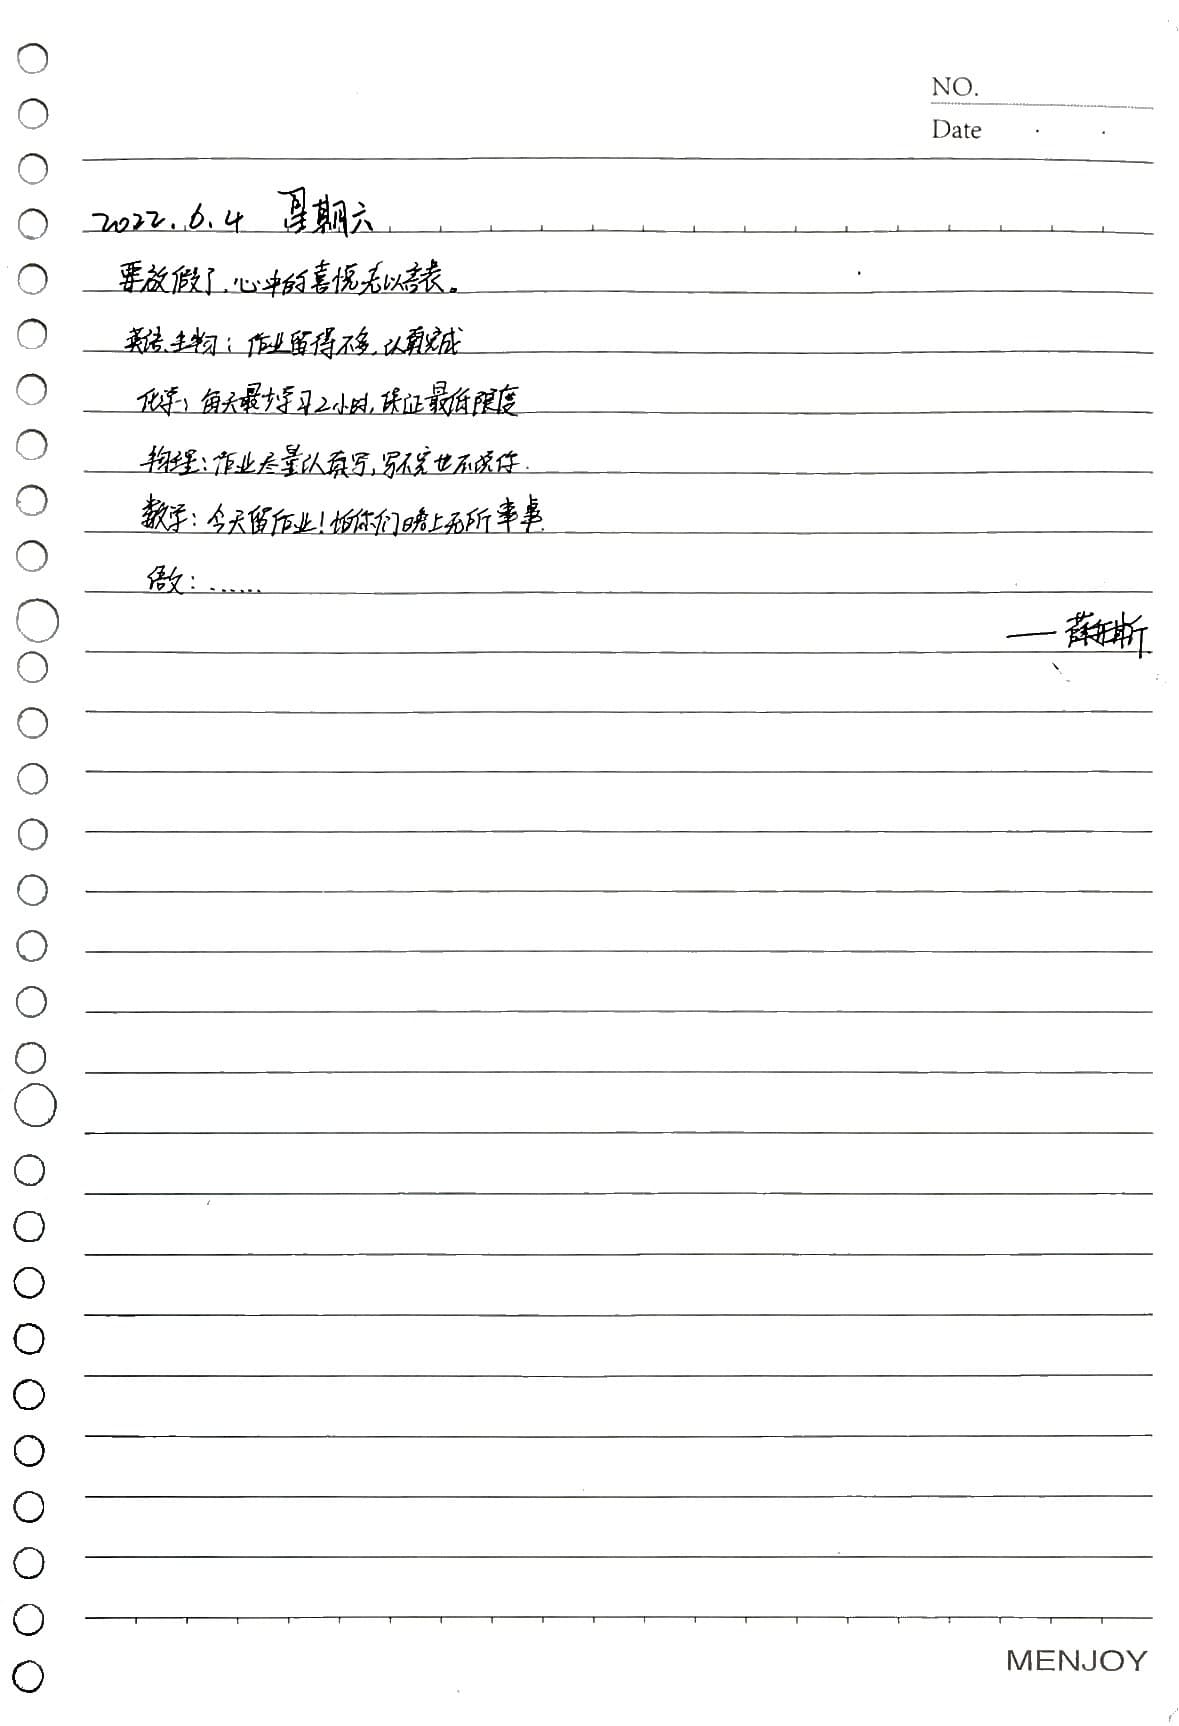 NO.
Date . .
2022.6.4 星期六
要放假了，心中的喜悦无以言表。
英语、生物：作业留得不多，认真完成
化学：每天最少学习2小时，保证最低限度
物理：作业尽量认真写，写不完也不说你.
数学：今天留作业！怕你们晚上无所事事.
语文：......
——薛
MENJOY